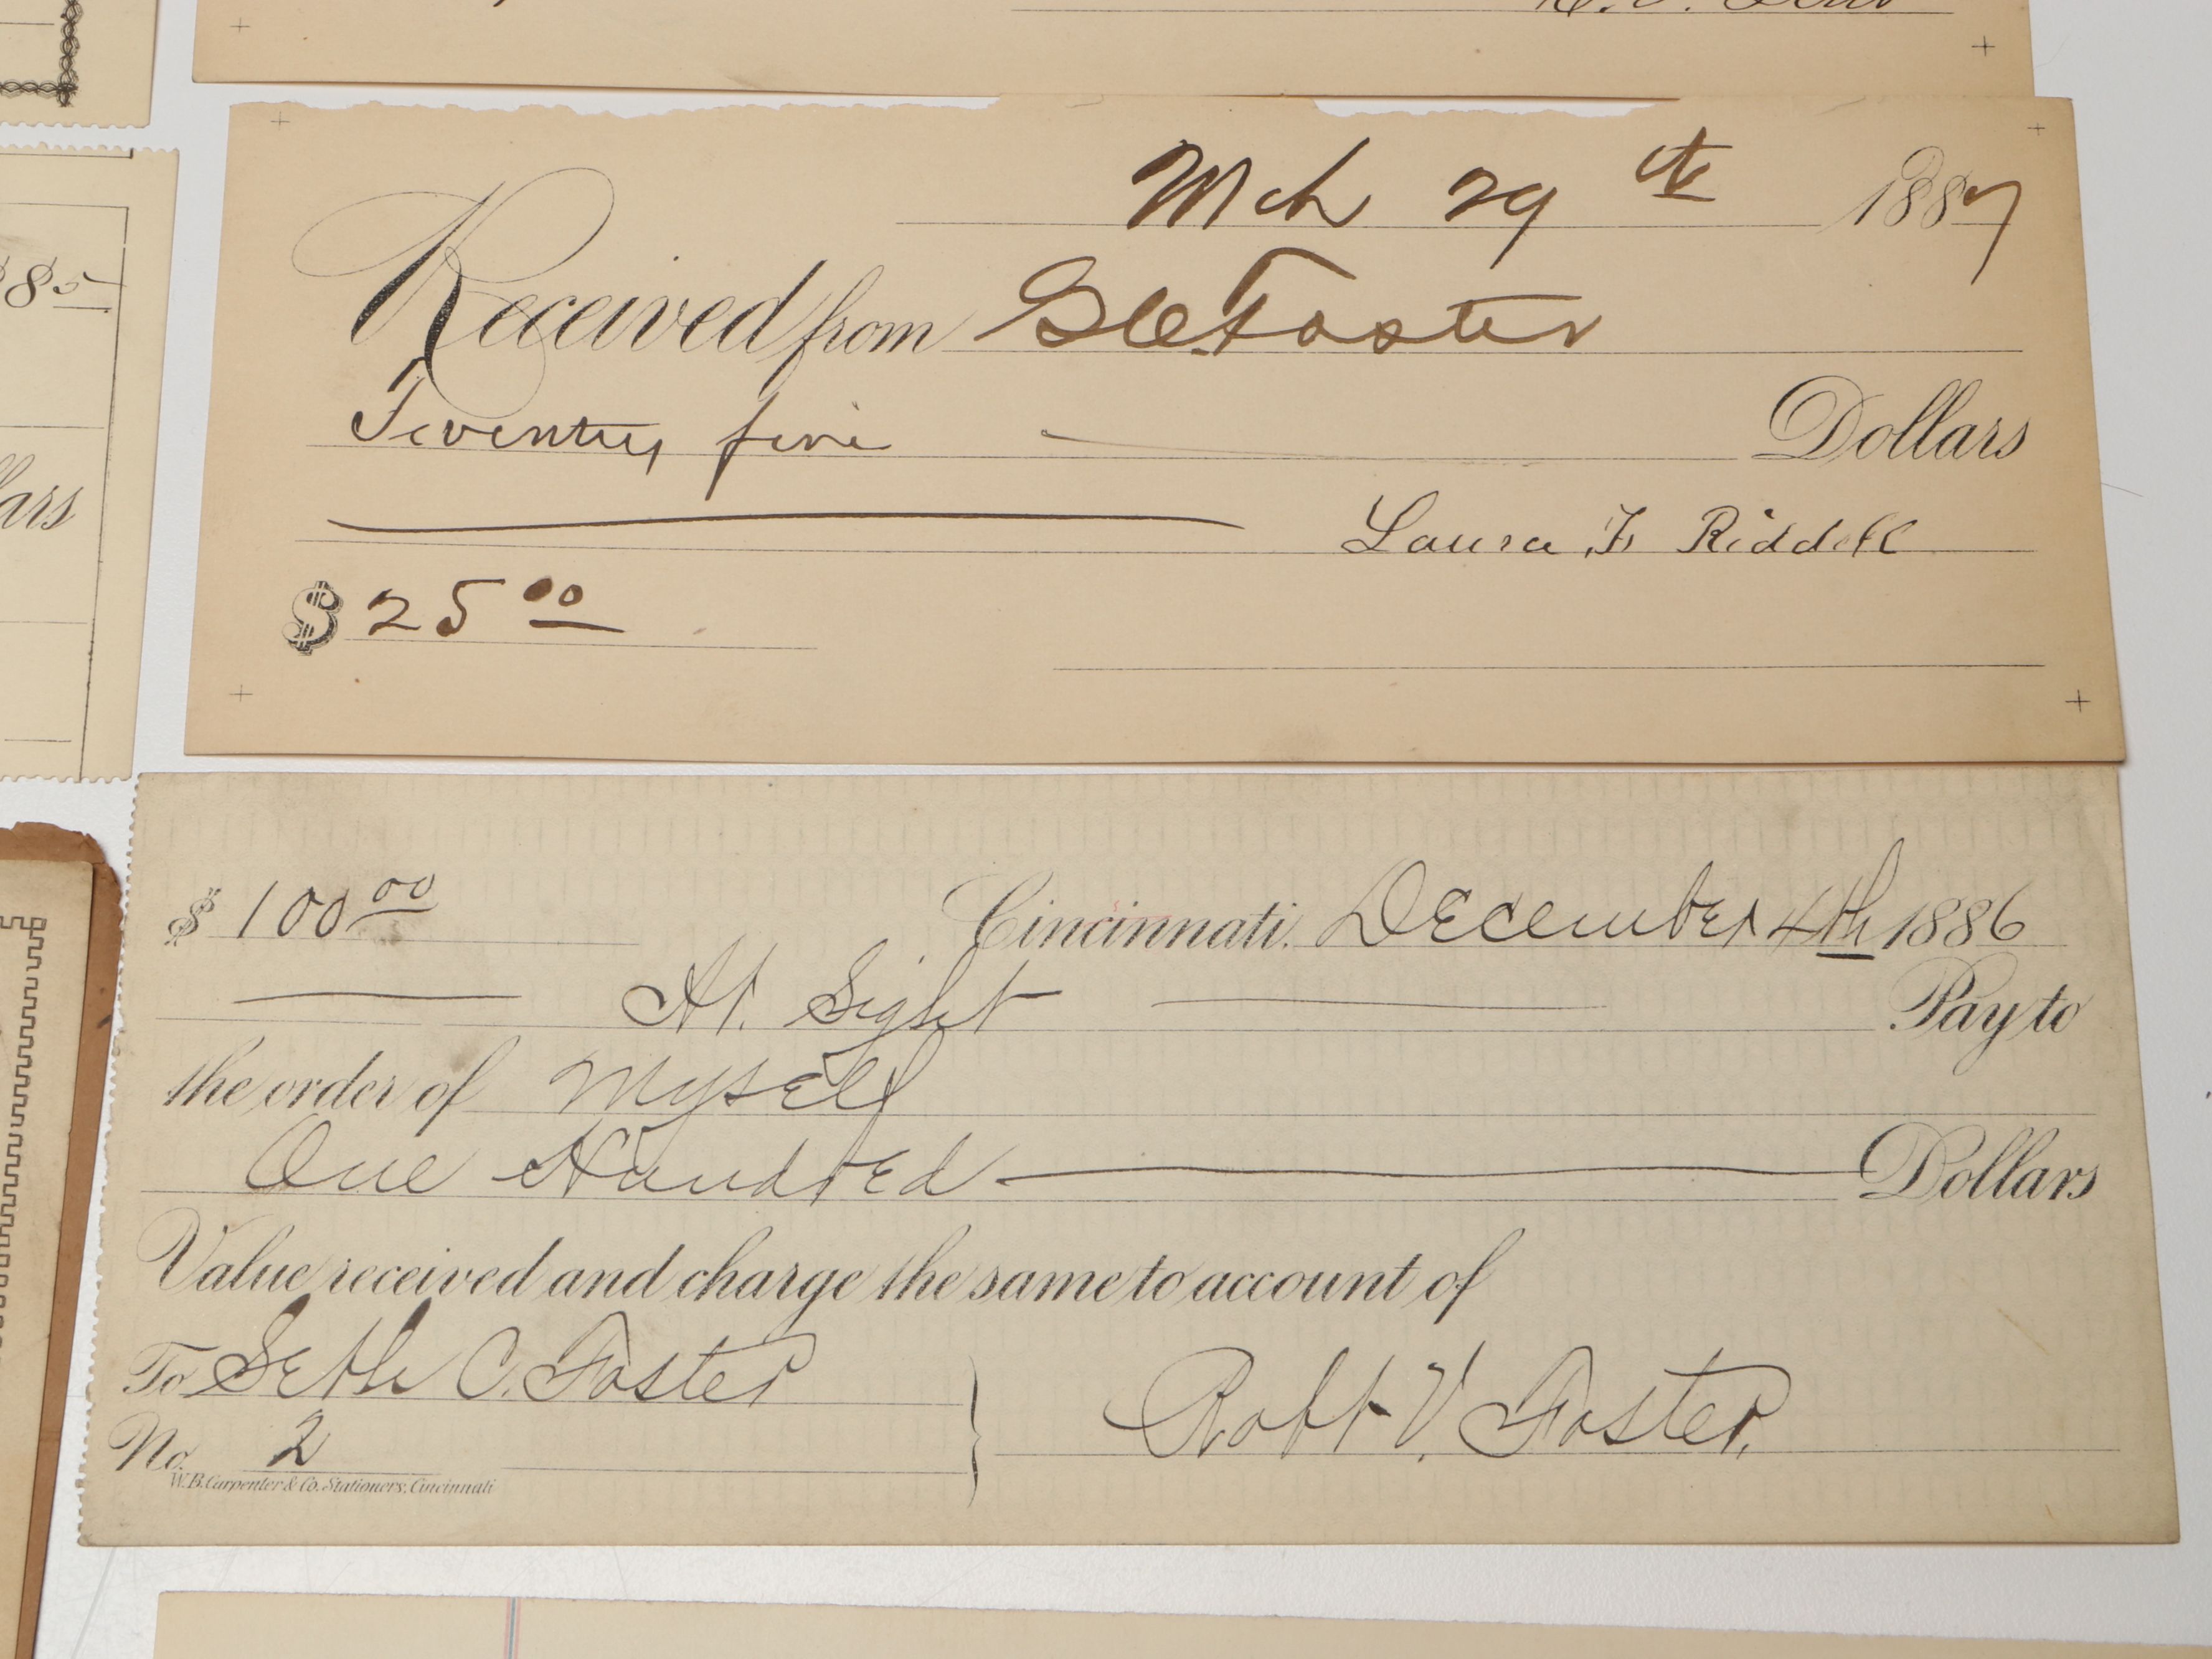 Mch 29th 1887
Received from S.C. Foster
Twenty five Dollars
Laura F Riddell
$ 25 00
85
lars
$ 100 00 Cincinnati. December 4th 1886
At. Sight Pay to
the order of Myself
One Hundred Dollars
Value received and charge the same to account of
To Seth C. Foster
Robt V. Foster.
No. 2
W.B. Carpenter & Co. Stationers, Cincinnati